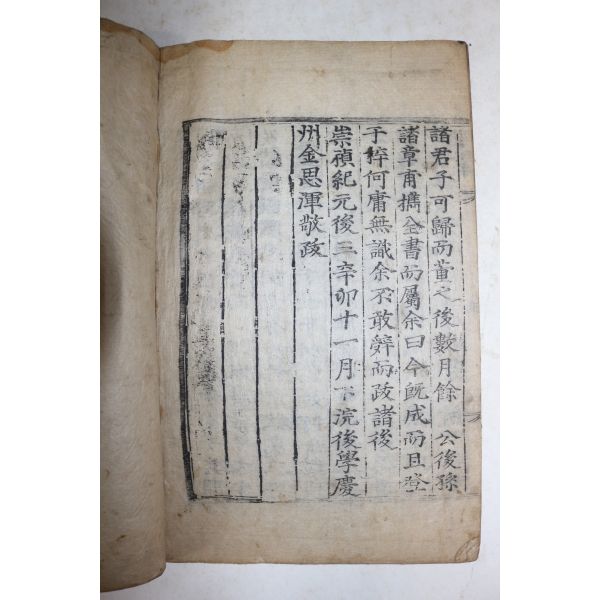 諸君子可歸而董之後數月餘 公後孫
諸章甫攜全書而屬余曰今旣成而且登
于梓何庸無識余不敢辭而跋諸後
崇禎紀元後三辛卯十一月下浣後學慶
州金思渾敬跋